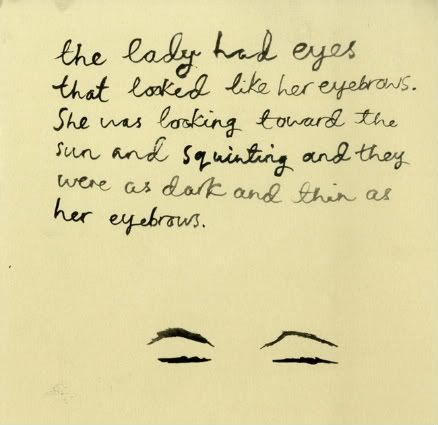 the lady had eyes
that looked like her eyebrows.
She was looking toward the
sun and squinting and they
were as dark and thin as
her eyebrows.